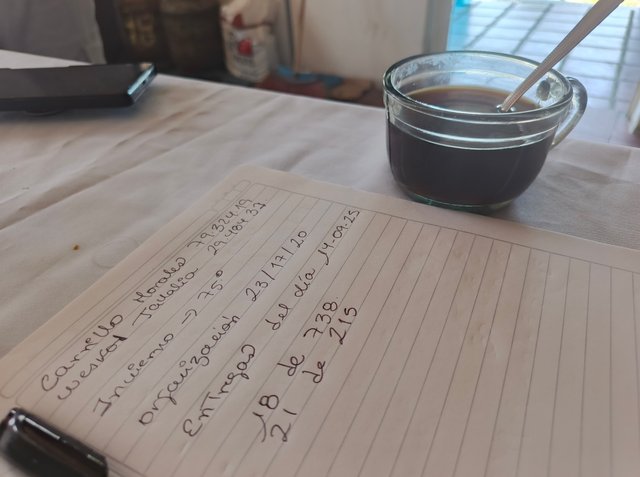 Carrello Morales 79.324.19
Weskol Tavalia 29.484.33
Invierno → 75°
organización 23/17/20
Entregas del día 14.09.25
18 de 738
21 de 215